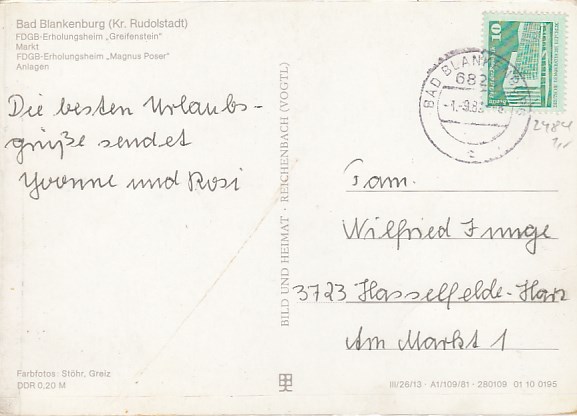 Bad Blankenburg (Kr. Rudolstadt)
FDGB-Erholungsheim „Greifenstein"
Markt
FDGB-Erholungsheim „Magnus Poser"
Anlagen
Die besten Urlaubs-
grüße sendet
Yvonne und Rosi
BILD UND HEIMAT · REICHENBACH (VOGTL)
10
BAD BLANKENBURG
682
-1.-9.83
2484
Fam.
Wilfried Junge
3723 Hasselfelde-Harz
Am Markt 1
Farbfotos: Stöhr, Greiz
DDR 0,20 M
III/26/13 · A1/109/81 · 280109 01 10 0195